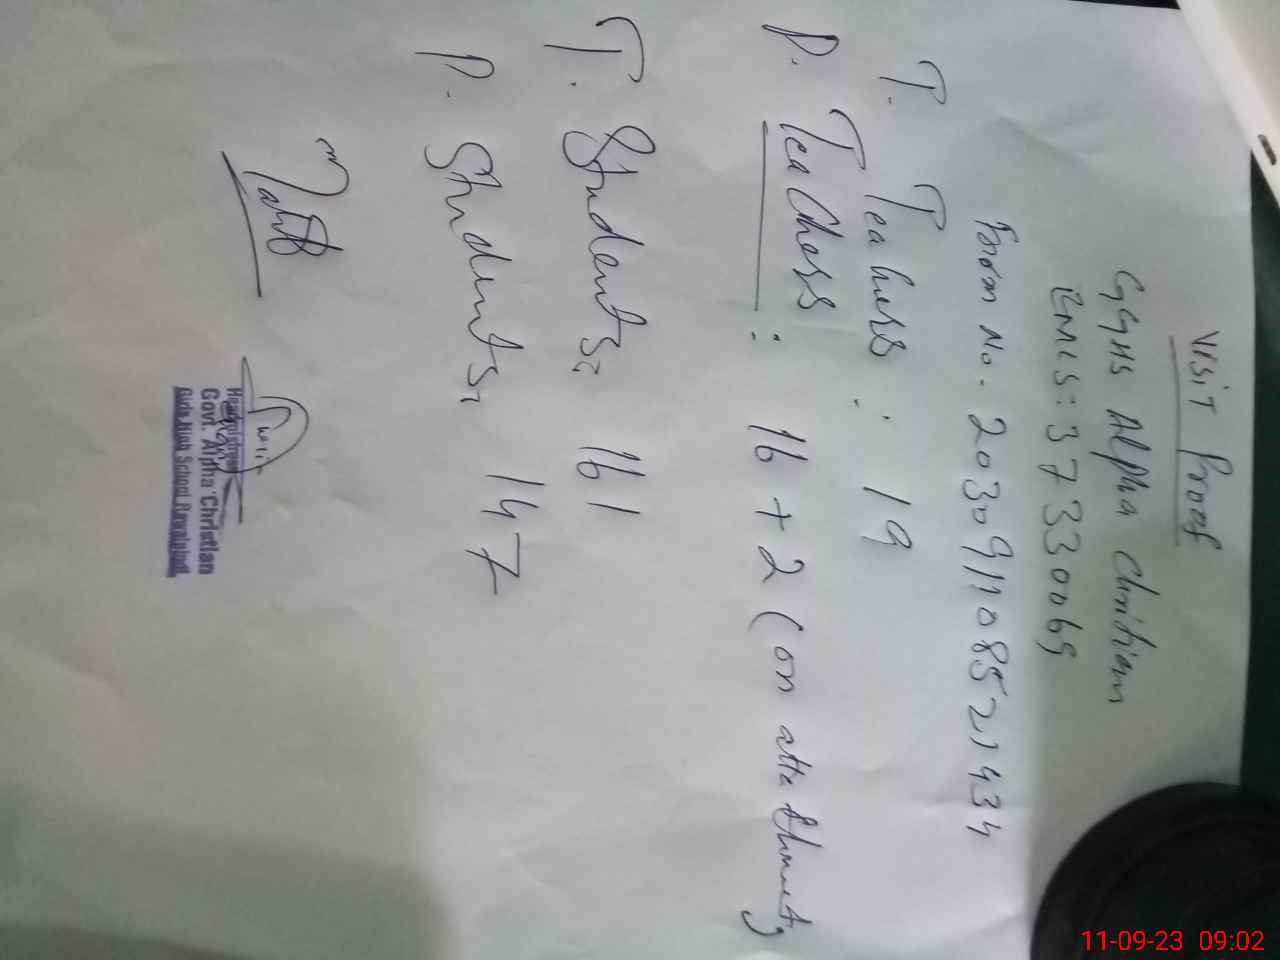 Visit Proof
GGHS Alpha Christian
EMIS: 37330069
Form No. 203091108521434
T. Teachers : 19
P. Teachers : 16 + 2 (on attachment)
T. Students: 161
P. Students: 147
Headmistress
Govt. Alpha Christian
Girls High School Rawalpindi
11-09-23 09:02